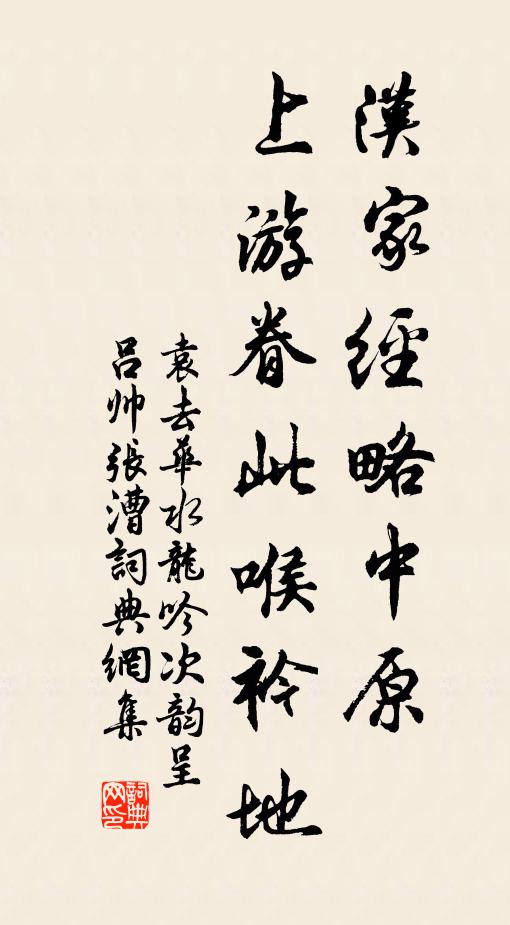 漢家經略中原
上游眷此喉衿地
袁去華水龍吟次韵呈
吕帅張漕詞典網集
詞典
网印